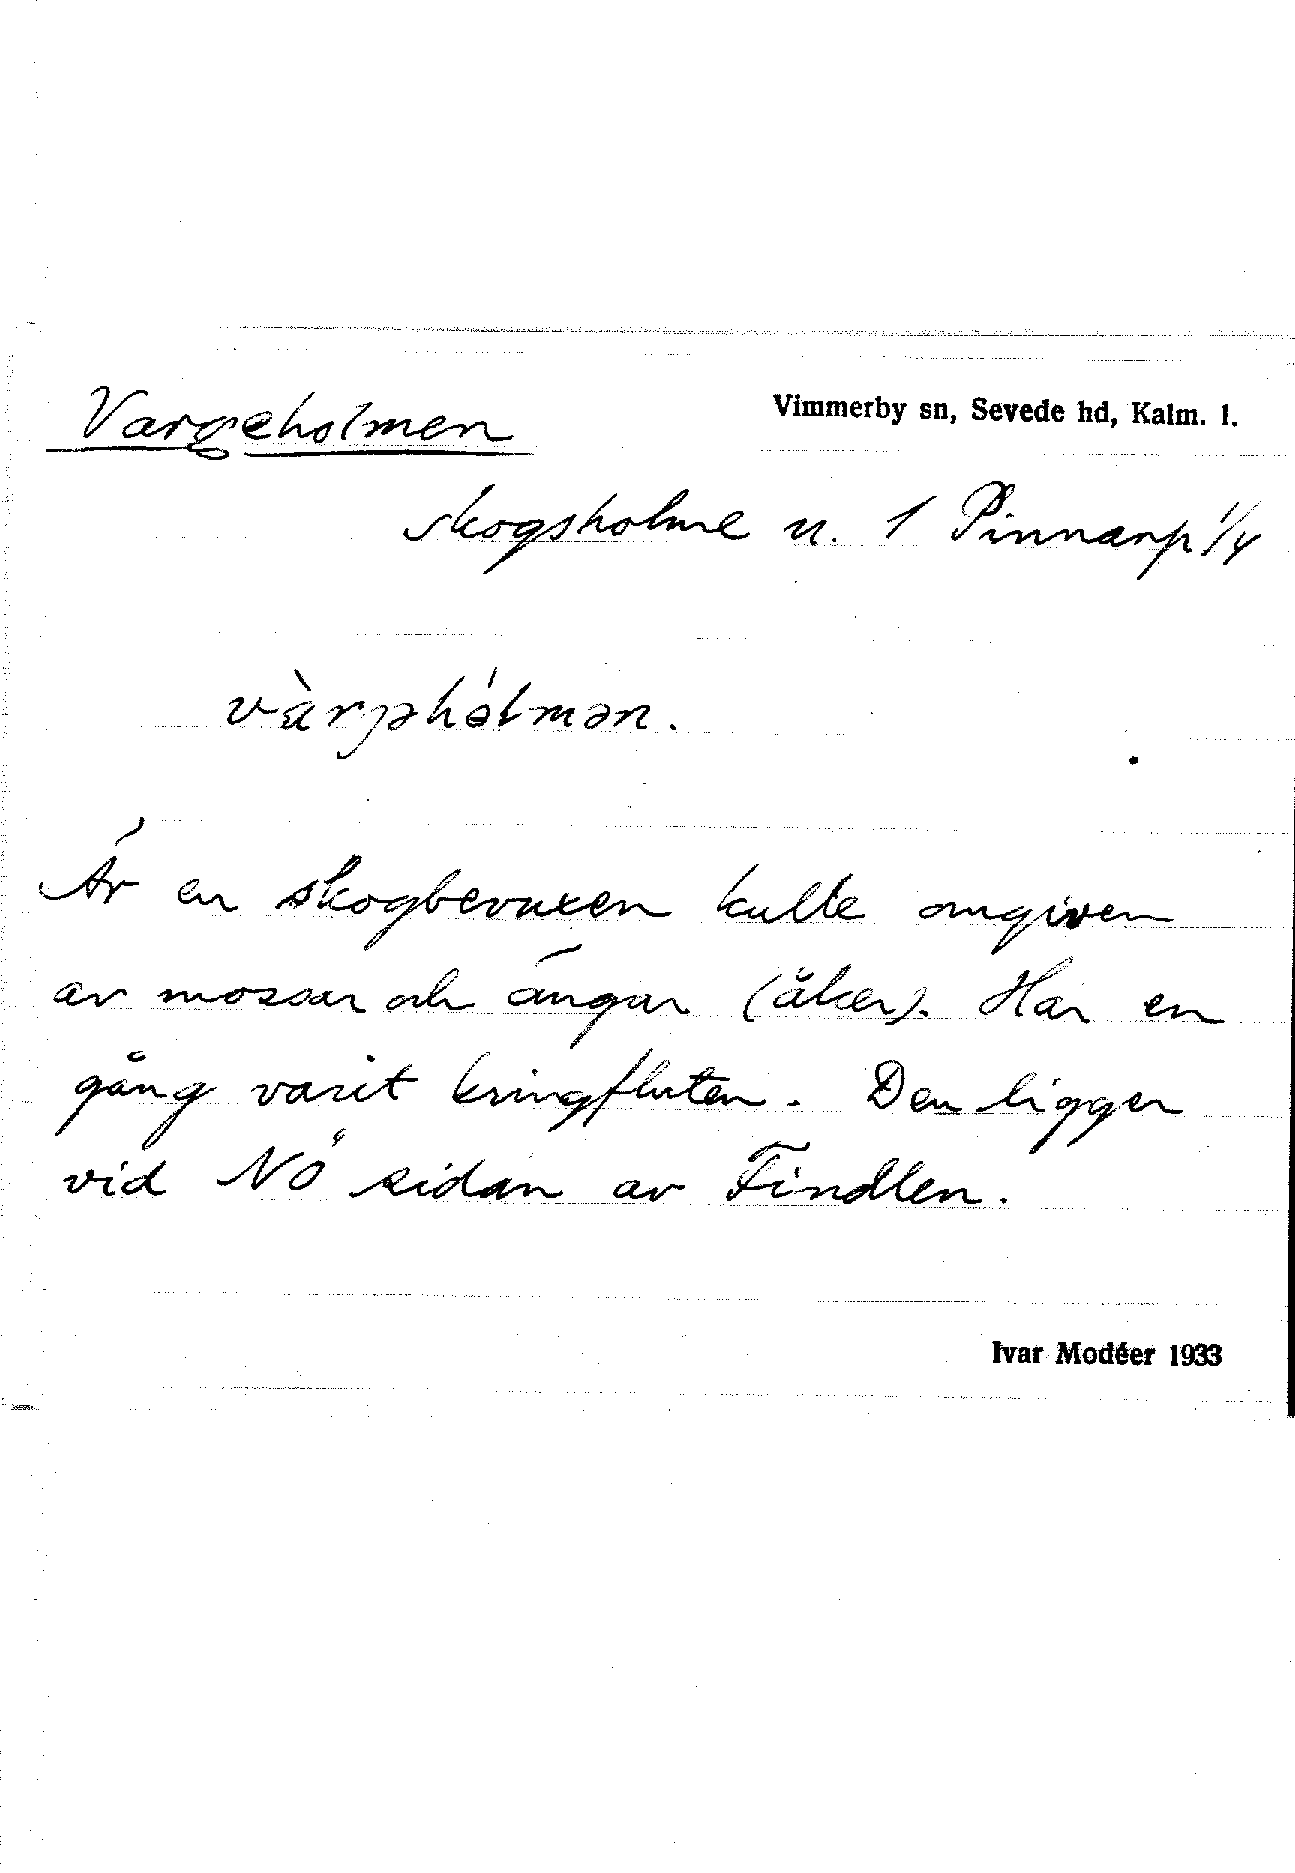 Vargeholmen
Vimmerby sn, Sevede hd, Kalm. l.
skogsholme u. 1 Pinnarp 1/4
vàrjəhólmən.
Är en skogbevuxen kulle omgiven
av mossar och ängar (åker). Har en
gång varit kringfluten. Den ligger
vid NÖ sidan av Findlen.
Ivar Modéer 1933